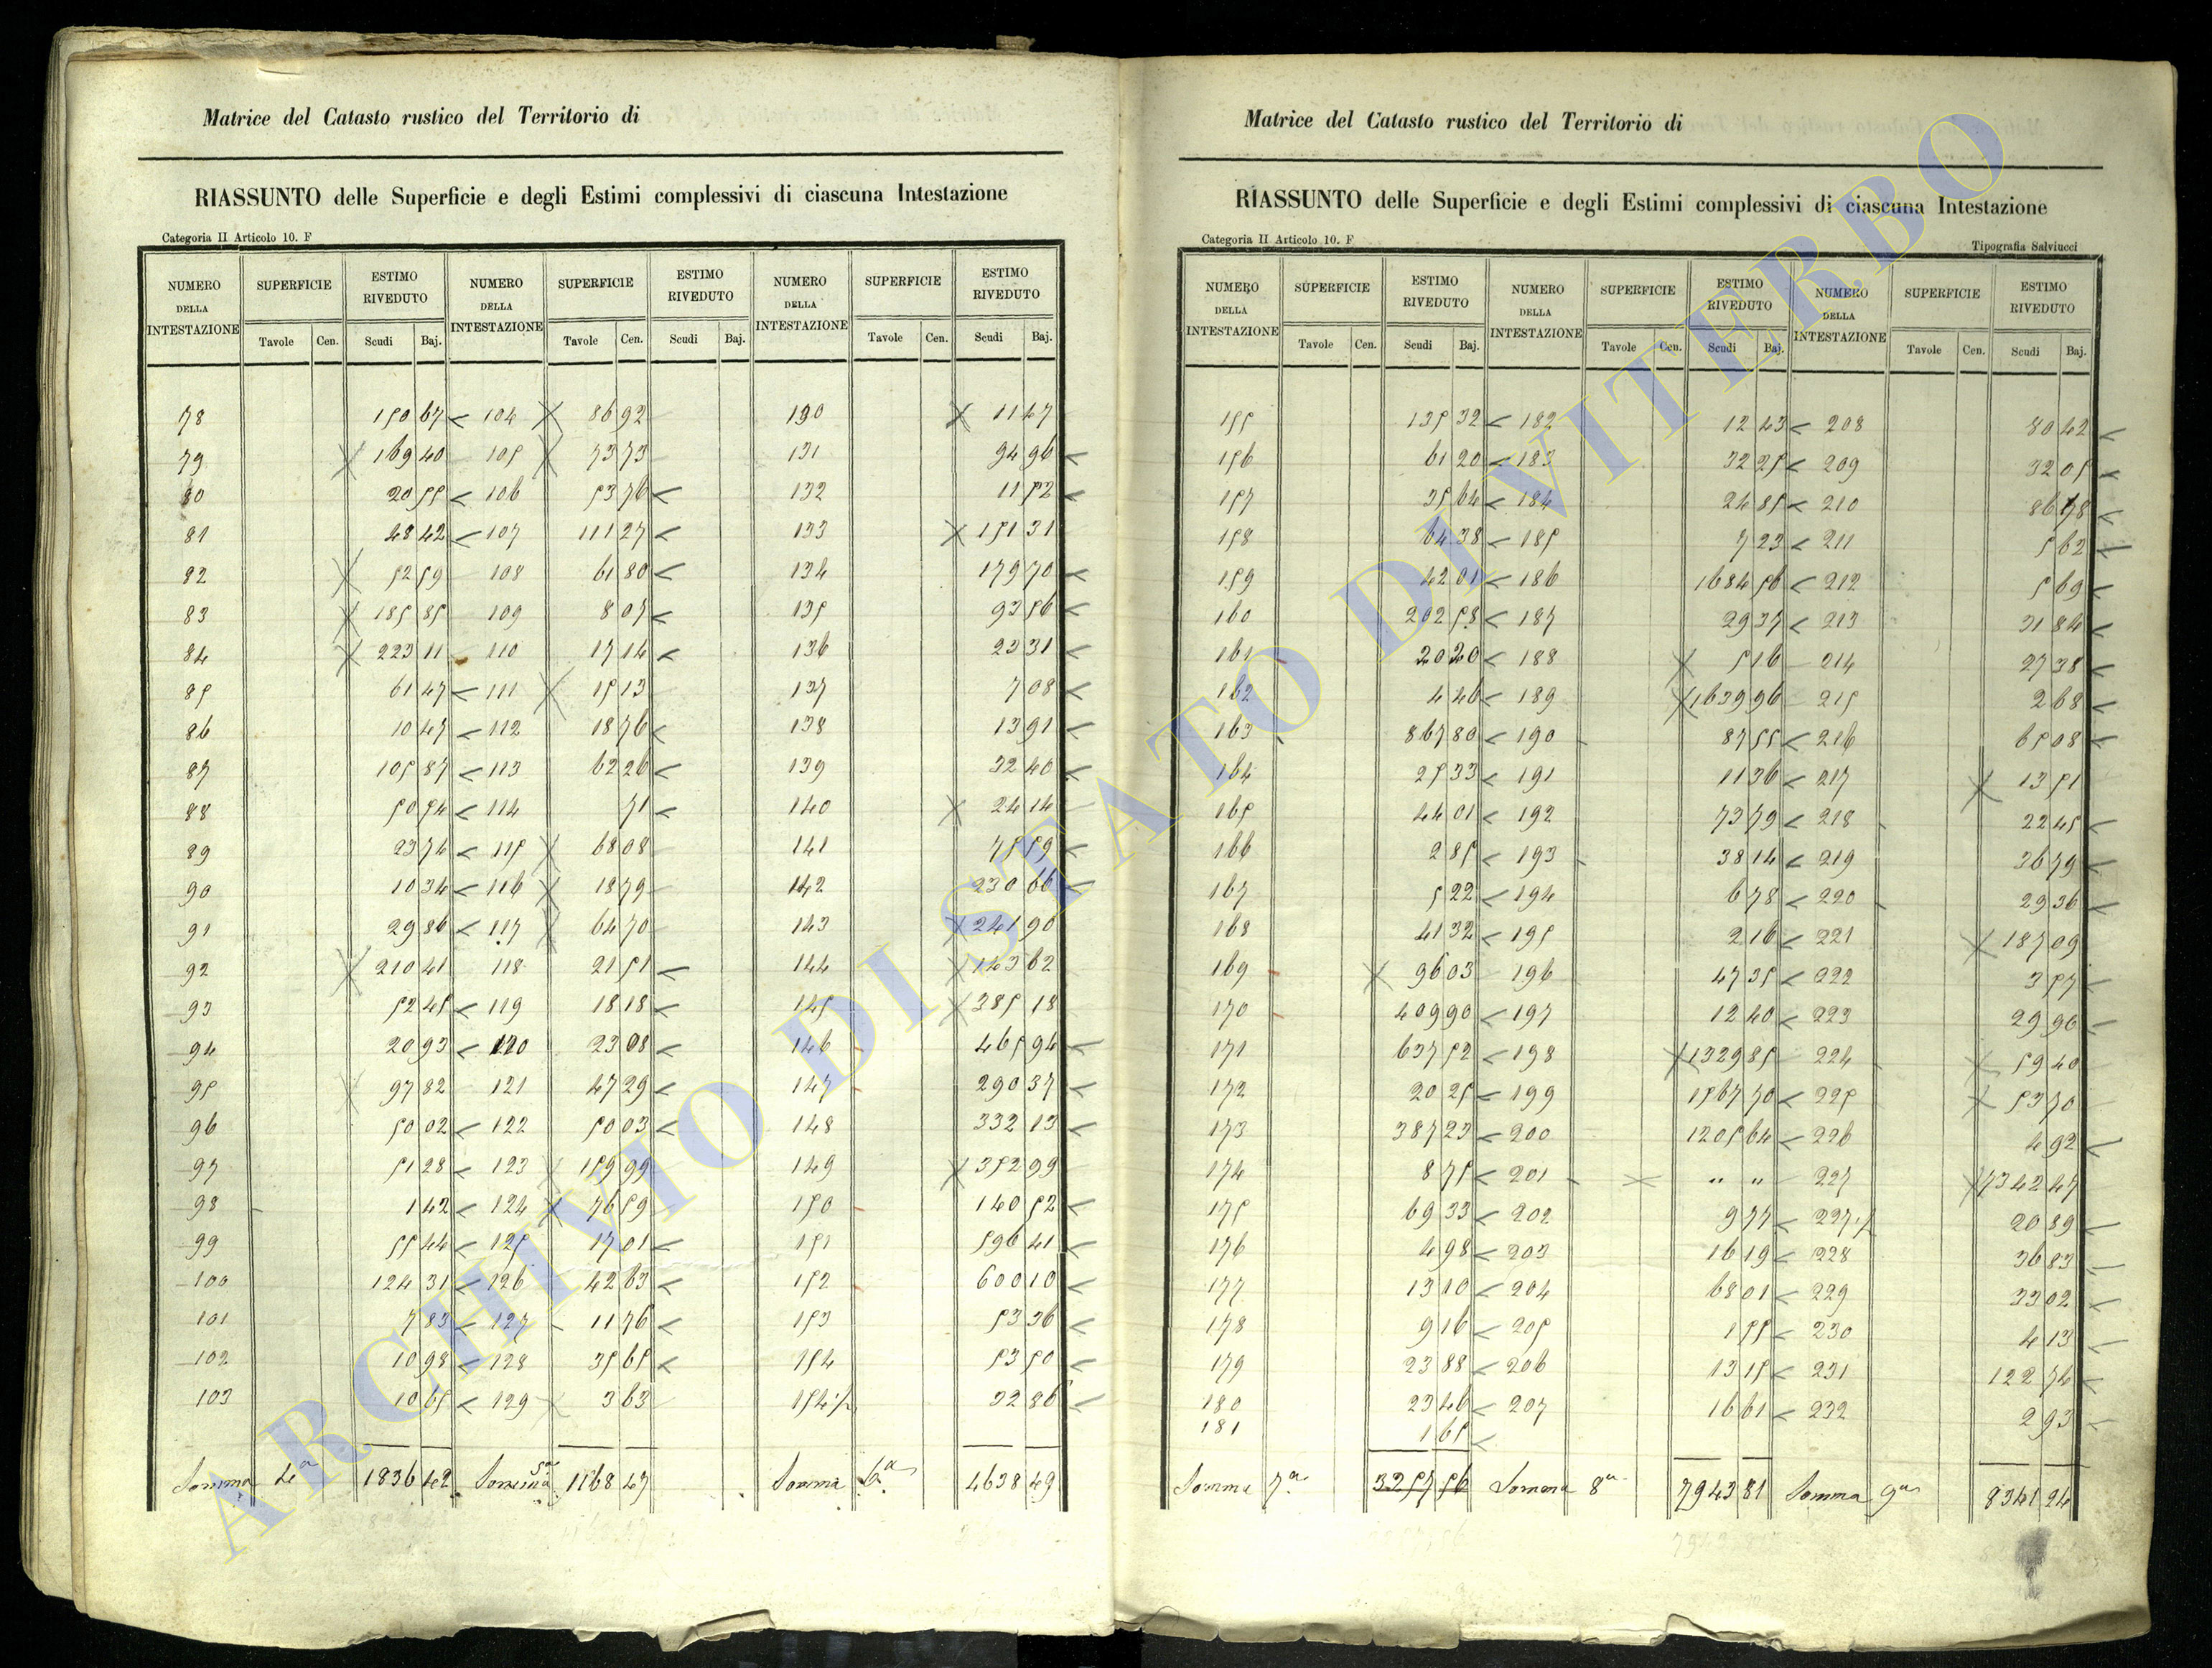 Matrice del Catasto rustico del Territorio di
RIASSUNTO delle Superficie e degli Estimi complessivi di ciascuna Intestazione
Categoria II Articolo 10. F
NUMERO DELLA INTESTAZIONE SUPERFICIE ESTIMO RIVEDUTO NUMERO DELLA INTESTAZIONE SUPERFICIE ESTIMO RIVEDUTO NUMERO DELLA INTESTAZIONE SUPERFICIE ESTIMO RIVEDUTO
Tavole Cen. Scudi Baj. Tavole Cen. Scudi Baj. Tavole Cen. Scudi Baj.
78 150 67 104 86 92 130 11 47
79 169 40 105 73 73 131 94 96
80 20 55 106 53 76 132 11 52
81 48 42 107 111 27 133 151 31
82 52 59 108 61 80 134 179 70
83 185 85 109 8 07 135 93 56
84 223 11 110 17 14 136 23 31
85 61 47 111 15 13 137 7 08
86 10 47 112 18 76 138 13 91
87 105 87 113 62 26 139 32 40
88 50 54 114 71 140 24 14
89 23 74 115 68 08 141 75 59
90 10 34 116 18 79 142 230 66
91 29 86 117 64 70 143 241 90
92 210 41 118 21 51 144 143 62
93 52 45 119 18 18 145 385 18
94 20 93 120 23 08 146 465 94
95 97 82 121 47 29 147 290 37
96 50 02 122 50 03 148 332 13
97 51 28 123 159 99 149 352 99
98 1 42 124 76 59 150 140 52
99 55 44 125 17 01 151 596 41
100 124 31 126 42 63 152 600 10
101 7 83 127 11 76 153 53 36
102 10 98 128 35 65 154 53 50
103 10 65 129 3 63 154½ 32 86
Somma 4a 1836 42 Somma 5a 1168 47 Somma 6a 4638 49
Matrice del Catasto rustico del Territorio di
RIASSUNTO delle Superficie e degli Estimi complessivi di ciascuna Intestazione
Categoria II Articolo 10. F Tipografia Salviucci
NUMERO DELLA INTESTAZIONE SUPERFICIE ESTIMO RIVEDUTO NUMERO DELLA INTESTAZIONE SUPERFICIE ESTIMO RIVEDUTO NUMERO DELLA INTESTAZIONE SUPERFICIE ESTIMO RIVEDUTO
Tavole Cen. Scudi Baj. Tavole Cen. Scudi Baj. Tavole Cen. Scudi Baj.
155 135 32 182 12 43 208 80 42
156 61 20 183 32 25 209 32 05
157 35 64 184 24 85 210 86 78
158 64 38 185 7 23 211 5 62
159 42 01 186 1684 56 212 5 69
160 202 58 187 29 37 213 31 84
161 20 20 188 5 16 214 27 38
162 4 46 189 1639 96 215 2 68
163 867 80 190 87 55 216 65 08
164 25 33 191 11 36 217 13 51
165 44 01 192 73 79 218 22 45
166 2 85 193 38 14 219 36 79
167 5 22 194 6 78 220 29 36
168 41 32 195 2 16 221 187 09
169 96 03 196 47 35 222 3 57
170 409 90 197 12 40 223 29 96
171 637 52 198 1329 85 224 59 40
172 20 25 199 1567 70 225 53 70
173 387 23 200 1205 64 226 4 92
174 8 75 201 " " 227 7342 47
175 69 33 202 9 77 227½ 20 89
176 4 98 203 16 19 228 36 83
177 13 10 204 68 01 229 33 02
178 9 16 205 1 55 230 4 13
179 23 88 206 13 15 231 122 74
180 23 46 207 16 61 232 2 93
181 1 65
Somma 7a 3257 56 Somma 8a 7943 81 Somma 9a 8341 24
ARCHIVIO DI STATO DI VITERBO